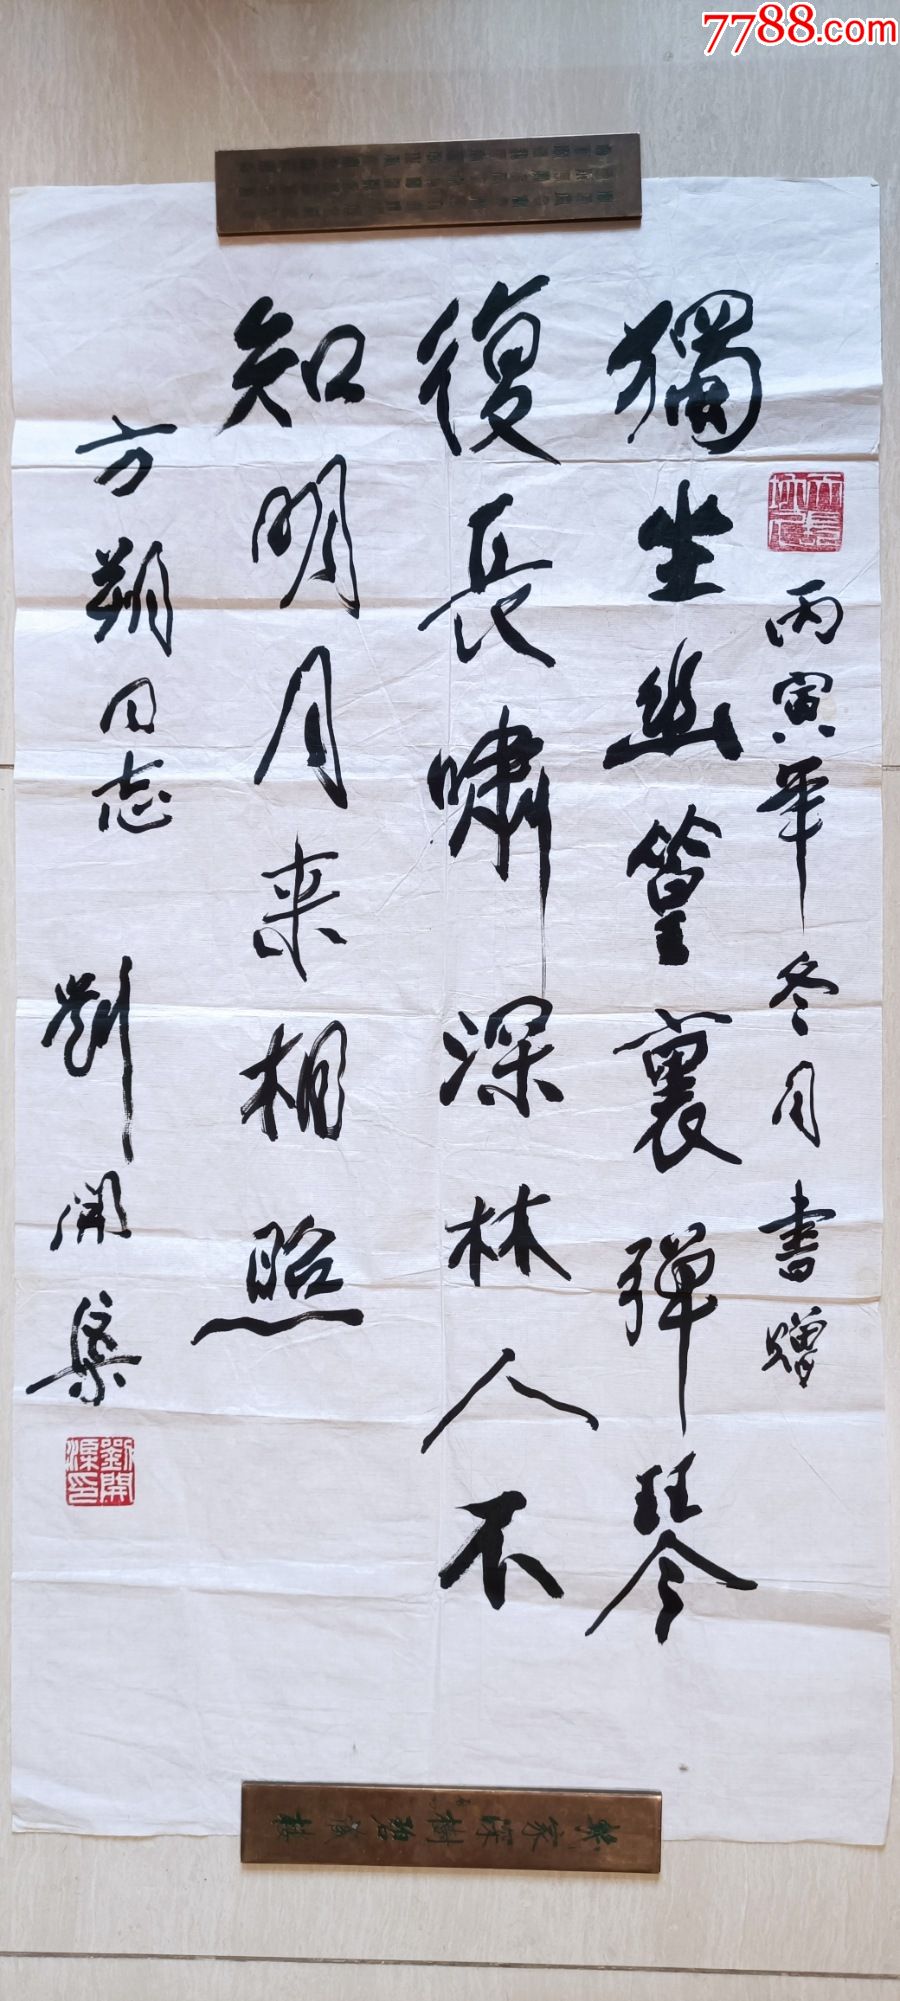 7788.com
丙寅年冬月書贈
獨坐幽篁裏弹琴
復長嘯深林人不
知明月来相照
方朔同志
劉開渠
劉開渠印